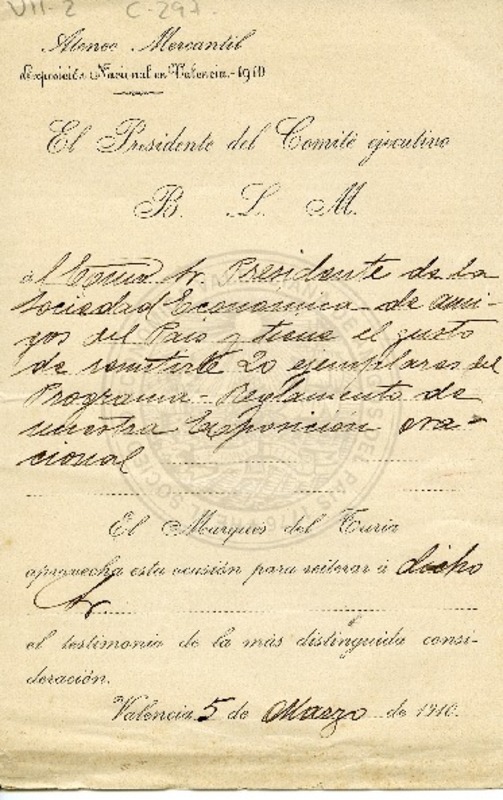 VII-2 C-297.
Ateneo Mercantil
Exposición Nacional en Valencia.-1910
El Presidente del Comité ejecutivo
B. L. M.
al Excmo Sr. Presidente de la
Sociedad Economica de ami-
gos del Pais y tiene el gusto
de remitirle 20 ejemplares del
Programa-Reglamento de
nuestra Exposición na-
cional
El Marqués del Turia
aprovecha esta ocasión para reiterar á dicho
Sr
el testimonio de la más distinguida consi-
deración.
Valencia 5 de Marzo de 1910.